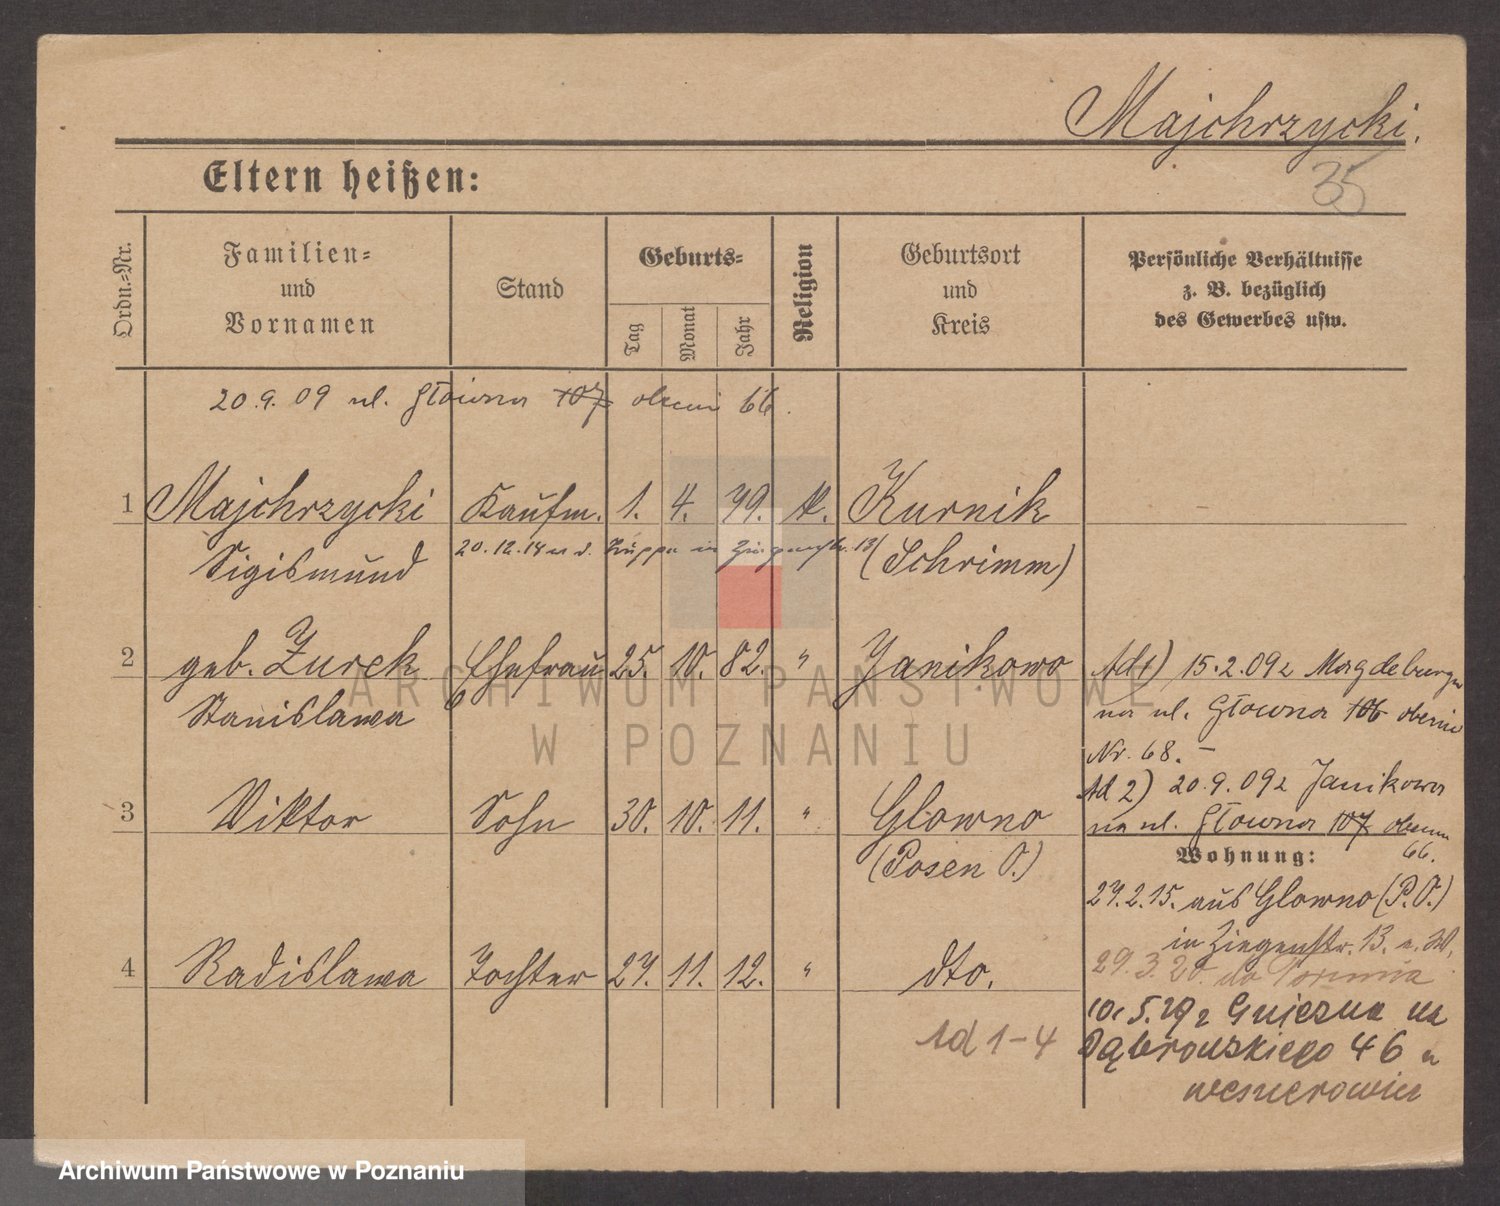 Majchrzycki.
35
Eltern heißen:
Ordn.-Nr.
Familien-
und
Vornamen
Stand
Geburts-
Tag
Monat
Jahr
Religion
Geburtsort
und
Kreis
Persönliche Verhältnisse
z. B. bezüglich
des Gewerbes usw.
20.9.09 ul. Główna 107 obecnie 66.
1 Majchrzycki Kaufm. 1. 4. 79. k. Kurnik
Sigismund 20.12.14 in Ziegenstr. 13 (Schrimm)
2 geb. Zurek Ehefrau 25. 10. 82. " Janikowo
Stanislawa
Ad 1) 15.2.09 z Magdeburga
na ul. Główna 106 obecnie
Nr. 68. –
3 Viktor Sohn 30. 10. 11. " Glowno
(Posen O.)
Ad 2) 20.9.09 z Janikowa
na ul. Główna 107 obecnie
66.
Wohnung:
27.2.15. aus Glowno (P.O.)
in Ziegenstr. 13.
4 Radislawa Tochter 27. 11. 12. " dto.
29.3.20. do Torunia
Ad 1-4
10.5.29 z Gniezna na
Dąbrowskiego 46 u
ARCHIWUM PAŃSTWOWE
W POZNANIU
Archiwum Państwowe w Poznaniu